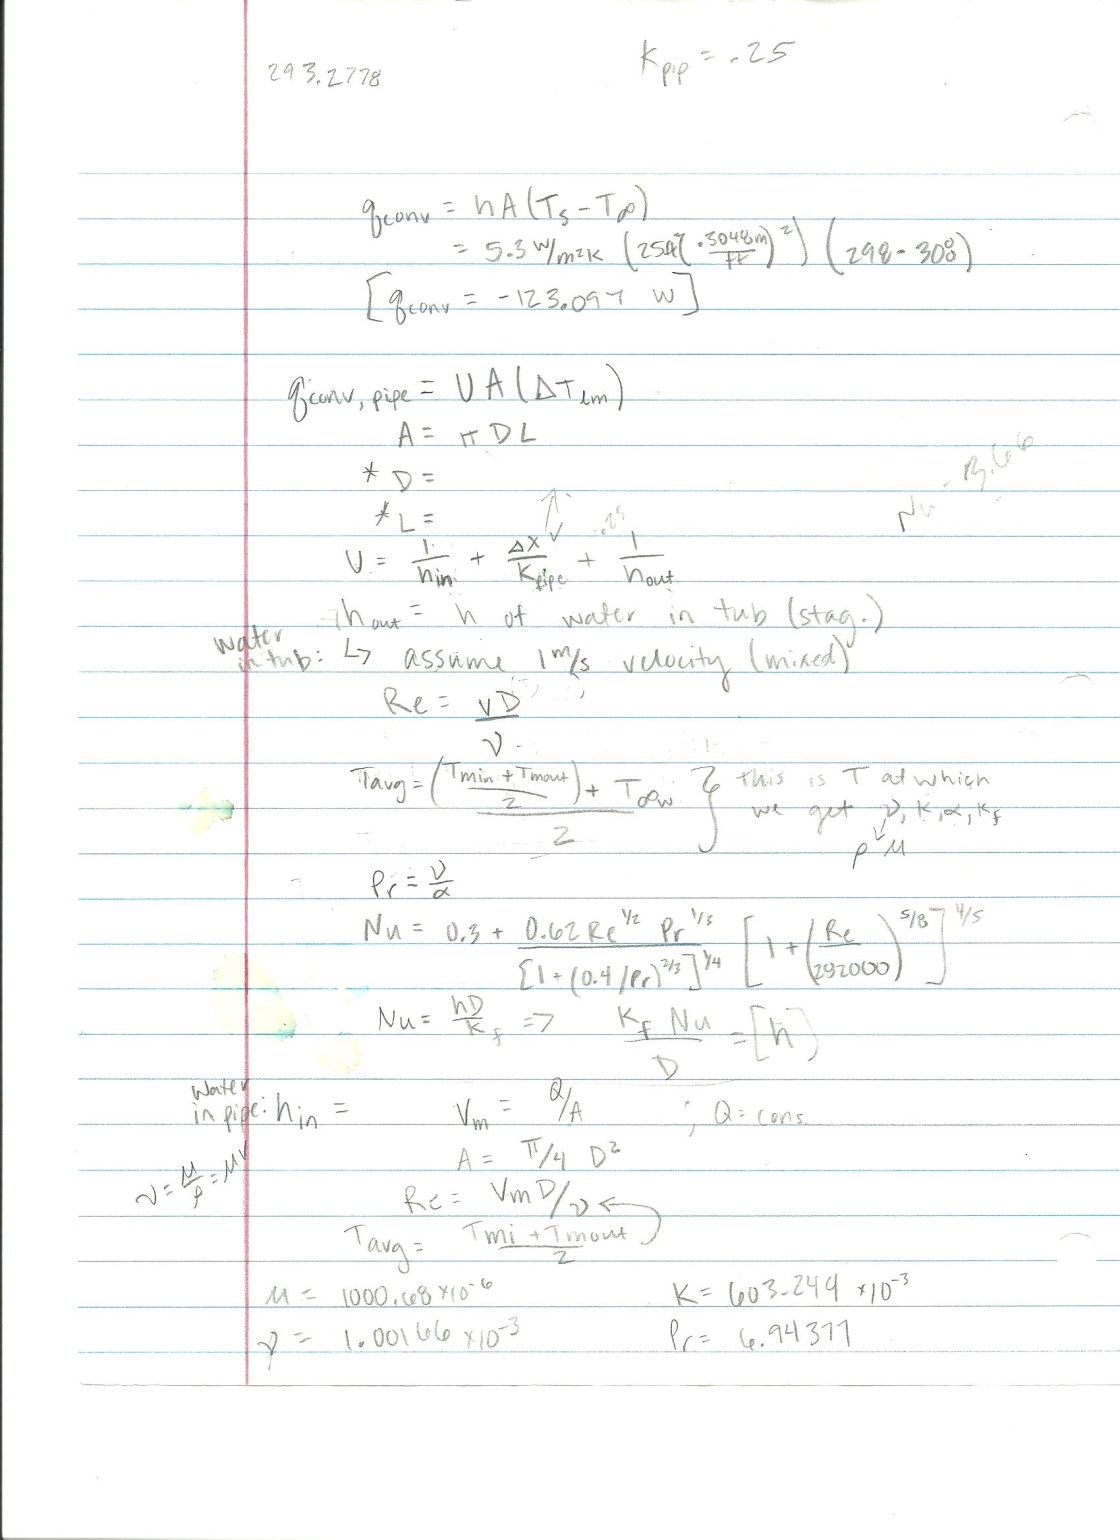 293.2778
Kpip = .25
qconv = hA(Ts - T∞)
= 5.3 W/m²K (25ft²(.3048m/ft)²) (298 - 308)
[qconv = -123.097 W]
qconv, pipe = UA(ΔTlm)
A = πDL
* D =
Nu = 3.66
* L =
.25
U = 1/hin + Δx/Kpipe + 1/hout
hout = h of water in tub (stag.)
water in tub: ↳ assume 1 m/s velocity (mixed)
Re = vD/ν
Tavg = ((Tmin + Tmout)/2) + T∞w / 2 } this is T at which
we get ν, K, α, Kf
ρ μ
Pr = ν/α
Nu = 0.3 + 0.62 Re^1/2 Pr^1/3 / [1 + (0.4/Pr)^2/3]^1/4 [1 + (Re/282000)^5/8]^4/5
Nu = hD/Kf => Kf Nu/D = [h]
water in pipe: hin =
Vm = Q/A ; Q = cons.
A = π/4 D²
ν = μ/ρ = μν
Re = VmD/ν ←
Tavg = (Tmi + Tmout)/2
μ = 1000.68 x10^-6
K = 603.249 x10^-3
ν = 1.00166 x10^-3
Pr = 6.94377